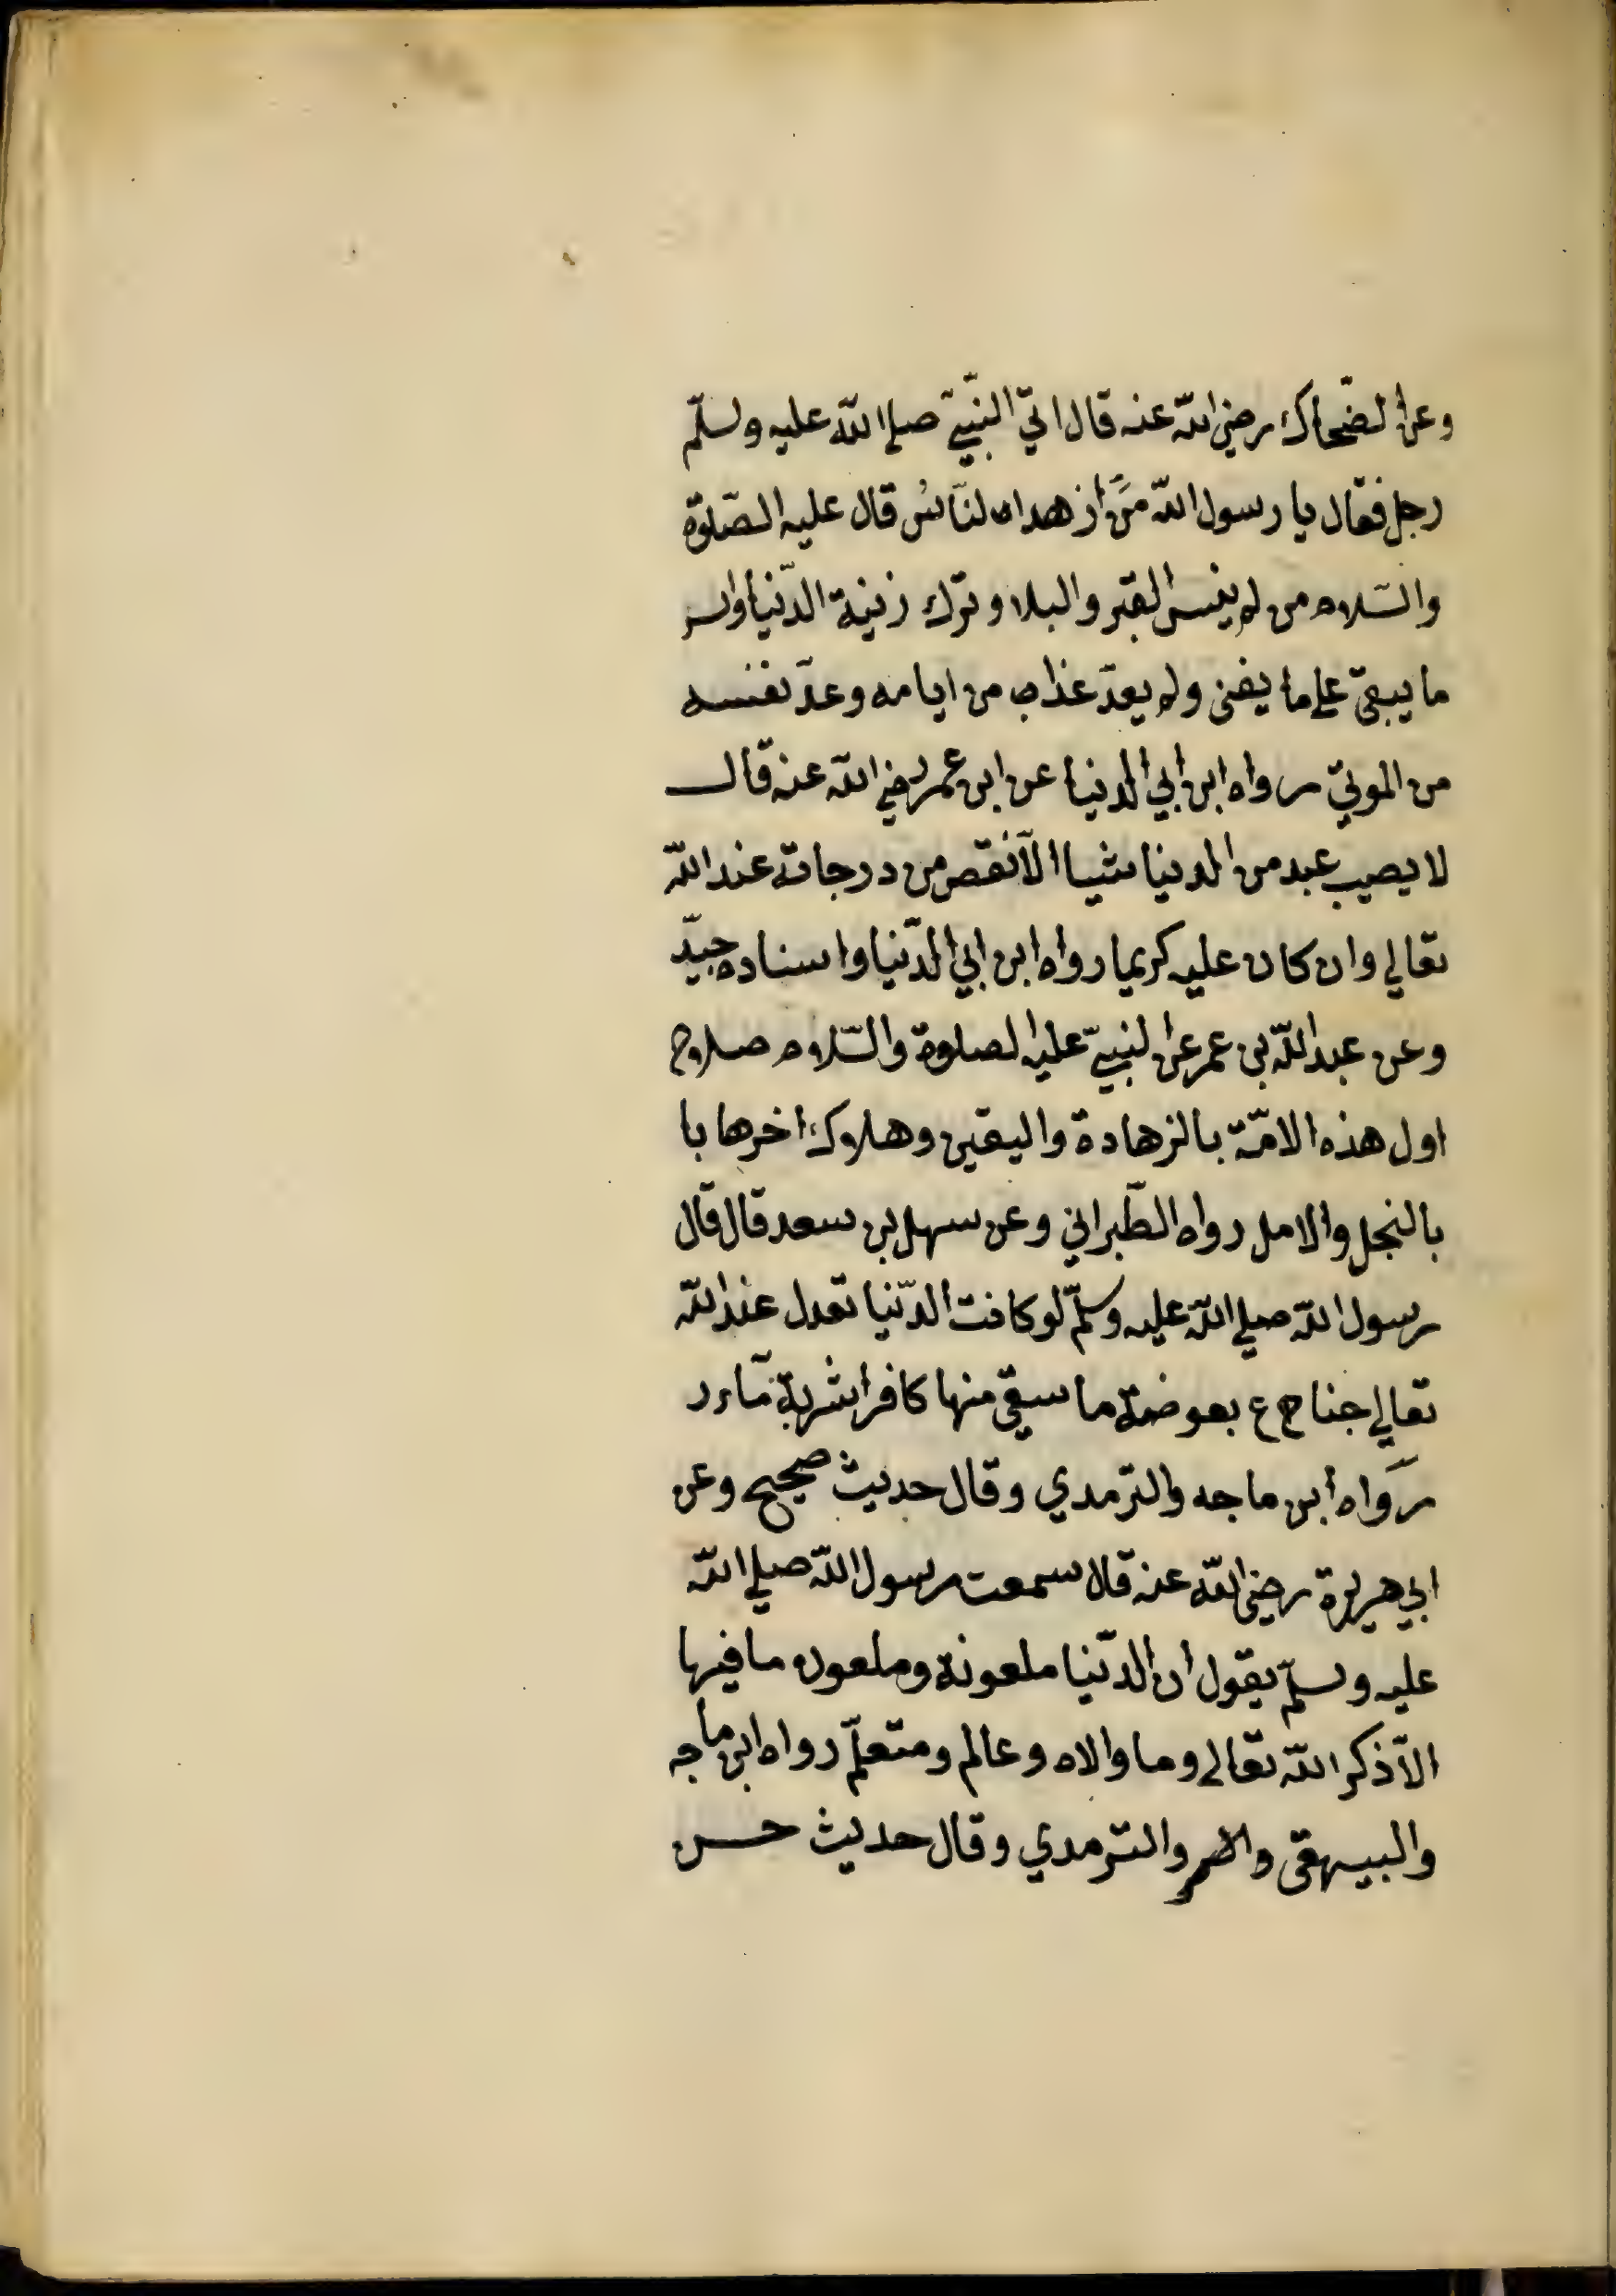 وعن الضّحاك رضي الله عنه قال اتيّ النبّيّ صلي الله عليه وسلّم
رجل فقال يا رسول الله مَن ازهد الناس قال عليه الصّلوة
والسّلام من لم ينس القبر والبلا وترك زنية الدّنيا واسر
ما يبقيّ علي ما يفني ولم يعدّ غذا من ايامه وعدّ نفسه
من الموتي رواه ابن ابي الدنيا عن ابن عمر رضي الله عنه قال
لا يصيب عبد من الدنيا شيا الاّ نقص من درجاته عند الله
تعالي وان كان عليه كريما رواه ابن ابي الدّنيا واسناده جيّد
وعن عبد الله بن عمر عن النبيّ عليه الصلوة والسّلام صلاح
اول هذه الامّة بالزهادة واليقين وهلاك اخرها با
بالنجل والامل رواه الطّبراني وعن سهل بن سعد قال قال
رسول الله صلي الله عليه وسلّم لو كانت الدّنيا تعدل عند الله
تعالي جناح ع بعوضة ما سقي منها كافرا شربة مّاء ر
رواه ابن ماجه والترمدي وقال حديث صحيح وعن
ابي هريرة رضي الله عنه قال سمعت رسول الله صلي الله
عليه وسلّم يقول ان الدّنيا ملعونة وملعون ما فيها
الاّ ذكر الله تعالي وما والاه وعالم ومتعلّم رواه ابن ماجه
والبيهقي والترمدي وقال حديث حسن